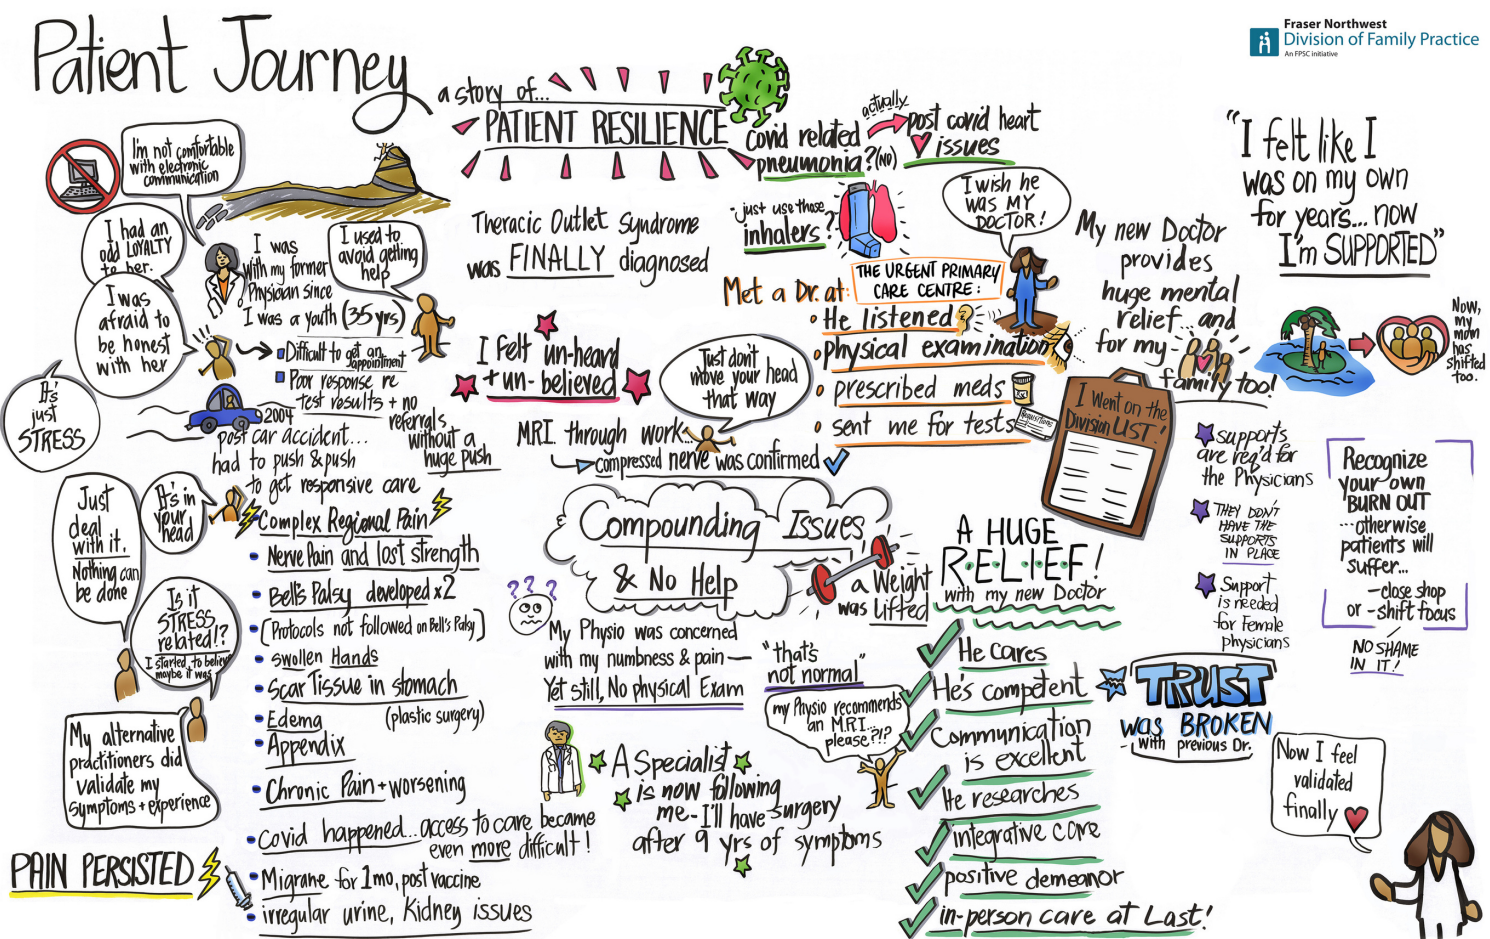 Patient Journey
Fraser Northwest
Division of Family Practice
An FPSC initiative
a story of...
PATIENT RESILIENCE
I'm not comfortable
with electronic
communication
I had an
odd LOYALTY
to her.
I was
afraid to
be honest
with her
I was
with my former
Physician since
I was a youth (35 yrs)
I used to
avoid getting
help
Difficult to get an
appointment
Poor response re
test results + no
referrals
without a
huge push
It's
just
STRESS
2004
post car accident...
had to push & push
to get responsive care
Just
deal
with it.
Nothing can
be done
It's in
your
head
Is it
STRESS
related!?
I started to believe
maybe it was
My alternative
practitioners did
validate my
symptoms + experience
PAIN PERSISTED
Complex Regional Pain
Nerve Pain and lost strength
Bell's Palsy developed x2
(Protocols not followed on Bell's Palsy)
swollen Hands
Scar Tissue in stomach
Edema (plastic surgery)
Appendix
Chronic Pain + worsening
Covid happened... access to care became
even more difficult!
Migrane for 1mo, post vaccine
irregular urine, Kidney issues
Theracic Outlet Syndrome
was FINALLY diagnosed
I felt un-heard
+ un-believed
Just don't
move your head
that way
MRI through work...
compressed nerve was confirmed
Compounding Issues
& No Help
a Weight
was lifted
? ? ?
My Physio was concerned
with my numbness & pain —
Yet still, No physical Exam
"that's
not normal"
my Physio recommends
an M.R.I....
please?!?
A Specialist
is now following
me - I'll have surgery
after 9 yrs of symptoms
covid related
pneumonia? (NO)
actually
post covid heart
issues
- just use those
inhalers?
I wish he
WAS MY
DOCTOR!
Met a Dr. at:
THE URGENT PRIMARY
CARE CENTRE:
He listened
physical examination
prescribed meds
sent me for tests
Requisition
A HUGE
R.E.L.I.E.F!
with my new Doctor
He Cares
He's competent
Communication
is excellent
He researches
integrative care
positive demeanor
in-person care at Last!
My new Doctor
provides
huge mental
relief... and
for my
family too!
I Went on the
Division LIST!
"I felt like I
was on my own
for years... now
I'm SUPPORTED"
Now,
my
mom
has
shifted
too.
supports
are req'd for
the Physicians
THEY DON'T
HAVE THE
SUPPORTS
IN PLACE
Support
is needed
for Female
physicians
Recognize
your own
BURN OUT
... otherwise
patients will
suffer...
- close shop
or - shift focus
NO SHAME
IN IT!
TRUST
was BROKEN
- with previous Dr.
Now I feel
validated
finally